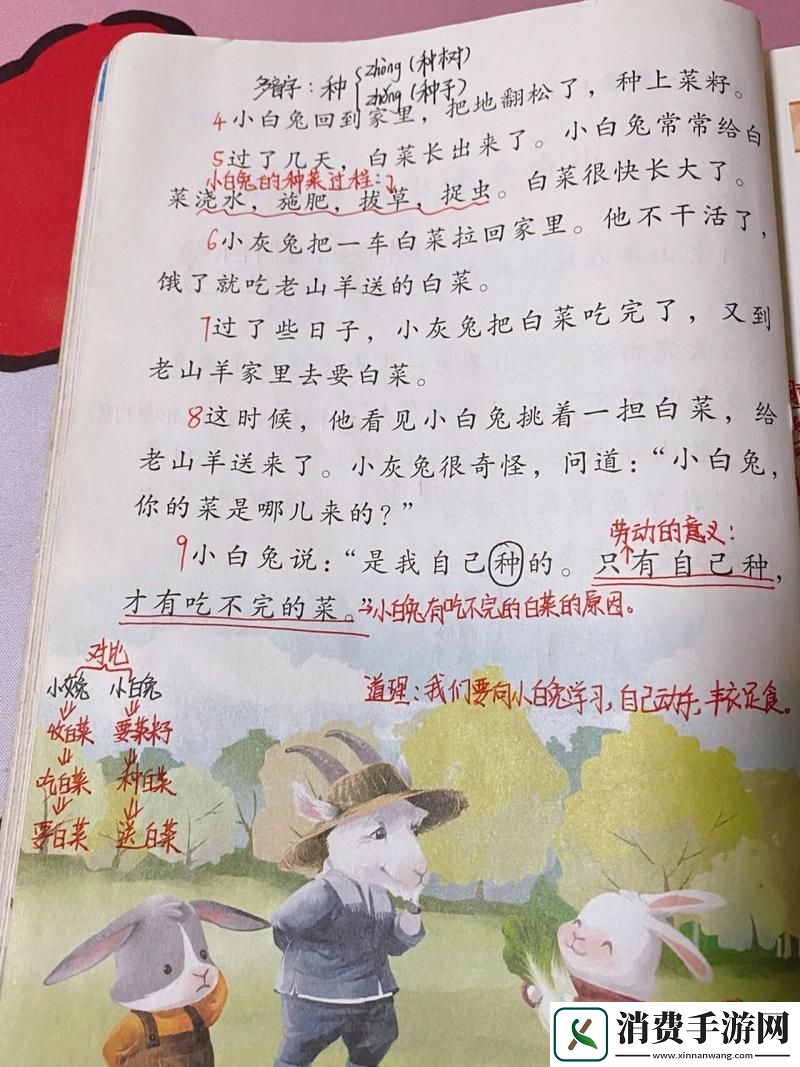 多音字：种 zhòng（种树）
zhǒng（种子）
4小白兔回到家里，把地翻松了，种上菜籽。
5过了几天，白菜长出来了。小白兔常常给白
小白兔的种菜过程：
菜浇水，施肥，拔草，捉虫。白菜很快长大了。
6小灰兔把一车白菜拉回家里。他不干活了，
饿了就吃老山羊送的白菜。
7过了些日子，小灰兔把白菜吃完了，又到
老山羊家里去要白菜。
8这时候，他看见小白兔挑着一担白菜，给
老山羊送来了。小灰兔很奇怪，问道：“小白兔，
你的菜是哪儿来的？”
劳动的意义：
9小白兔说：“是我自己种的。只有自己种，
才有吃不完的菜。”→小白兔有吃不完的白菜的原因。
对比
小灰兔 小白兔
道理：我们要向小白兔学习，自己动手，丰衣足食。
收白菜 要菜籽
吃白菜 种白菜
要白菜 送白菜
消费手游网
www.xinnanwang.com